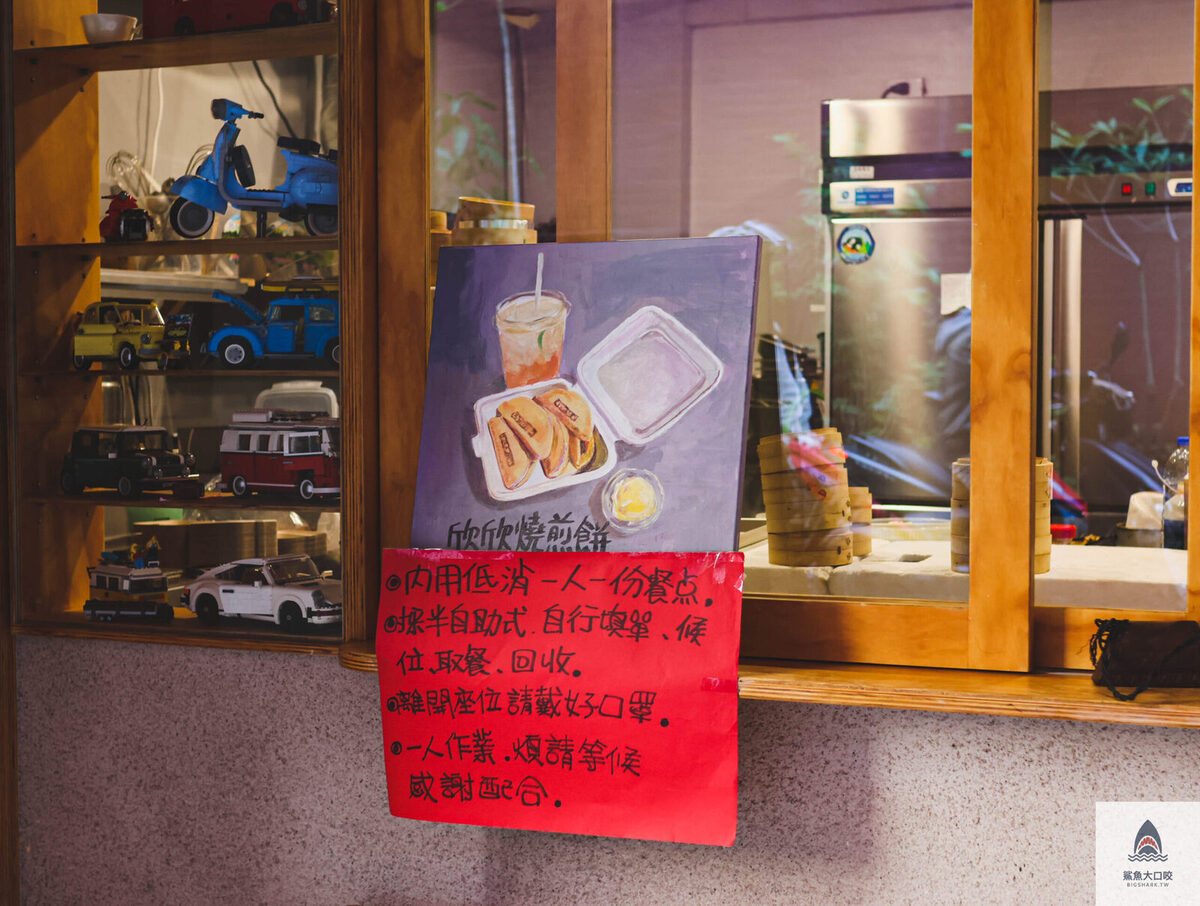 欣欣燒煎餅
●內用低消一人一份餐点.
●採半自助式.自行填單、候
位、取餐、回收.
●離開座位請戴好口罩.
●一人作業.煩請等候
感謝配合.
鯊魚大口咬
BIGSHARK.TW